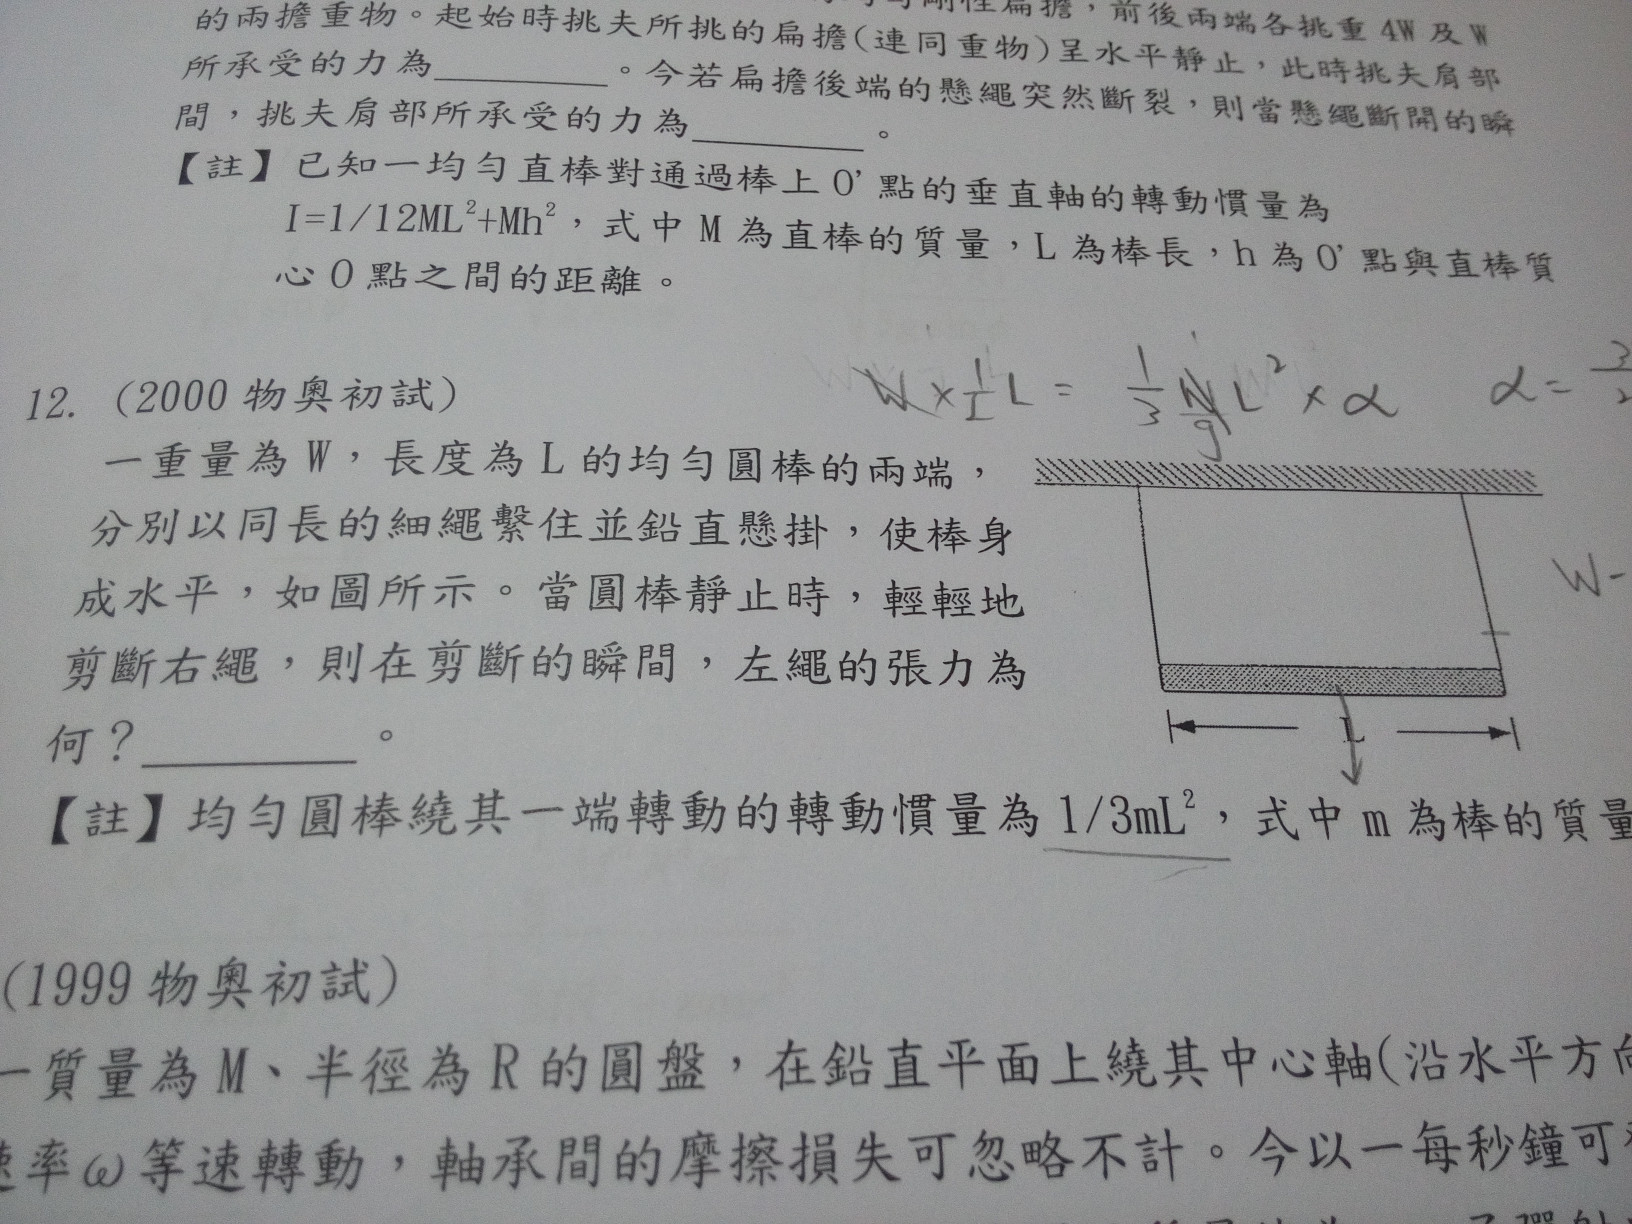 剛性扁擔，前後兩端各挑重 4W 及 W
的兩擔重物。起始時挑夫所挑的扁擔(連同重物)呈水平靜止，此時挑夫肩部
所承受的力為＿＿＿＿。今若扁擔後端的懸繩突然斷裂，則當懸繩斷開的瞬
間，挑夫肩部所承受的力為＿＿＿＿。
【註】已知一均勻直棒對通過棒上 O' 點的垂直軸的轉動慣量為
I=1/12ML²+Mh²，式中 M 為直棒的質量，L 為棒長，h 為 O' 點與直棒質
心 O 點之間的距離。
W × 1/2 L = 1/3 W/g L² × α α = 3/2
12. (2000 物奧初試)
一重量為 W，長度為 L 的均勻圓棒的兩端，
分別以同長的細繩繫住並鉛直懸掛，使棒身
成水平，如圖所示。當圓棒靜止時，輕輕地
剪斷右繩，則在剪斷的瞬間，左繩的張力為
何？＿＿＿＿。
W-
L
【註】均勻圓棒繞其一端轉動的轉動慣量為 1/3mL²，式中 m 為棒的質量
(1999 物奧初試)
一質量為 M、半徑為 R 的圓盤，在鉛直平面上繞其中心軸(沿水平方向
速率 ω 等速轉動，軸承間的摩擦損失可忽略不計。今以一每秒鐘可